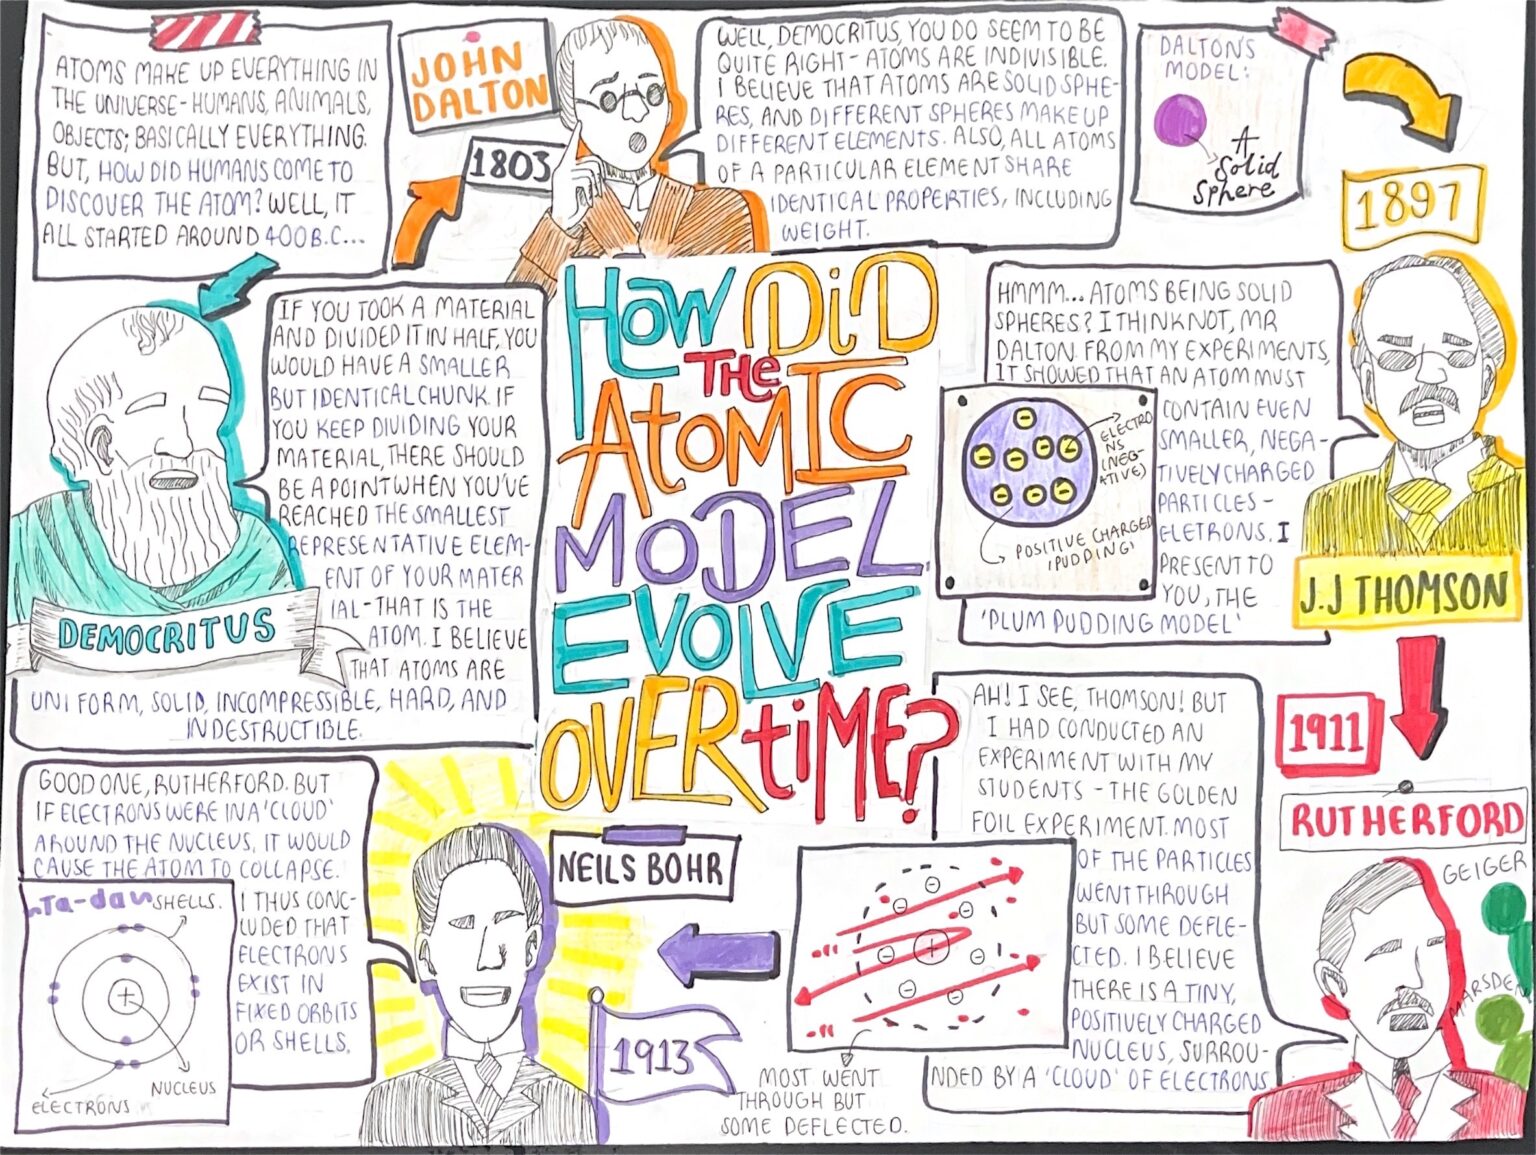 ATOMS MAKE UP EVERYTHING IN
THE UNIVERSE - HUMANS, ANIMALS,
OBJECTS; BASICALLY EVERYTHING.
BUT, HOW DID HUMANS COME TO
DISCOVER THE ATOM? WELL, IT
ALL STARTED AROUND 400 B.C...
JOHN
DALTON
1803
WELL, DEMOCRITUS, YOU DO SEEM TO BE
QUITE RIGHT - ATOMS ARE INDIVISIBLE.
I BELIEVE THAT ATOMS ARE SOLID SPHE-
RES, AND DIFFERENT SPHERES MAKE UP
DIFFERENT ELEMENTS. ALSO, ALL ATOMS
OF A PARTICULAR ELEMENT SHARE
IDENTICAL PROPERTIES, INCLUDING
WEIGHT.
DALTON'S
MODEL:
A
Solid
Sphere
1897
HOW DiD
THE
ATOMIC
MODEL
EVOLVE
OVER tiME?
IF YOU TOOK A MATERIAL
AND DIVIDED IT IN HALF, YOU
WOULD HAVE A SMALLER
BUT IDENTICAL CHUNK. IF
YOU KEEP DIVIDING YOUR
MATERIAL, THERE SHOULD
BE A POINT WHEN YOU'VE
REACHED THE SMALLEST
REPRESENTATIVE ELEM-
ENT OF YOUR MATER
IAL - THAT IS THE
ATOM. I BELIEVE
THAT ATOMS ARE
UNIFORM, SOLID, INCOMPRESSIBLE, HARD, AND
INDESTRUCTIBLE.
DEMOCRITUS
HMMM... ATOMS BEING SOLID
SPHERES? I THINK NOT, MR
DALTON. FROM MY EXPERIMENTS,
IT SHOWED THAT AN ATOM MUST
CONTAIN EVEN
SMALLER, NEGA-
TIVELY CHARGED
PARTICLES -
ELETRONS. I
PRESENT TO
YOU, THE
'PLUM PUDDING MODEL'
ELECTRO
NS
(NEG-
ATIVE)
POSITIVE CHARGED
'PUDDING'
J.J THOMSON
1911
RUTHERFORD
GEIGER
MARSDEN
AH! I SEE, THOMSON! BUT
I HAD CONDUCTED AN
EXPERIMENT WITH MY
STUDENTS - THE GOLDEN
FOIL EXPERIMENT. MOST
OF THE PARTICLES
WENT THROUGH
BUT SOME DEFLE-
CTED. I BELIEVE
THERE IS A TINY,
POSITIVELY CHARGED
NUCLEUS, SURROU-
NDED BY A 'CLOUD' OF ELECTRONS.
MOST WENT
THROUGH BUT
SOME DEFLECTED.
NEILS BOHR
1913
GOOD ONE, RUTHERFORD. BUT
IF ELECTRONS WERE IN A 'CLOUD'
AROUND THE NUCLEUS, IT WOULD
CAUSE THE ATOM TO COLLAPSE.
I THUS CONC-
LUDED THAT
ELECTRONS
EXIST IN
FIXED ORBITS
OR SHELLS.
Ta-dah
SHELLS.
NUCLEUS
ELECTRONS